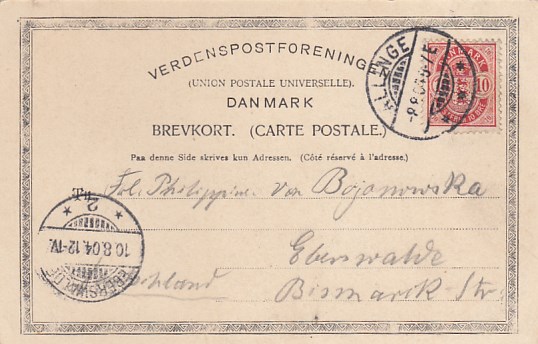 VERDENSPOSTFORENINGEN
(UNION POSTALE UNIVERSELLE).
DANMARK
BREVKORT. (CARTE POSTALE.)
Paa denne Side skrives kun Adressen. (Côté réservé à l'adresse.)
DANMARK
10
ALLINGE
8.8.04
Frl. Philippine von Bojanowska
Eberswalde
Bismarck-Str
EBERSWALDE
10.8.04.12-1V.
2